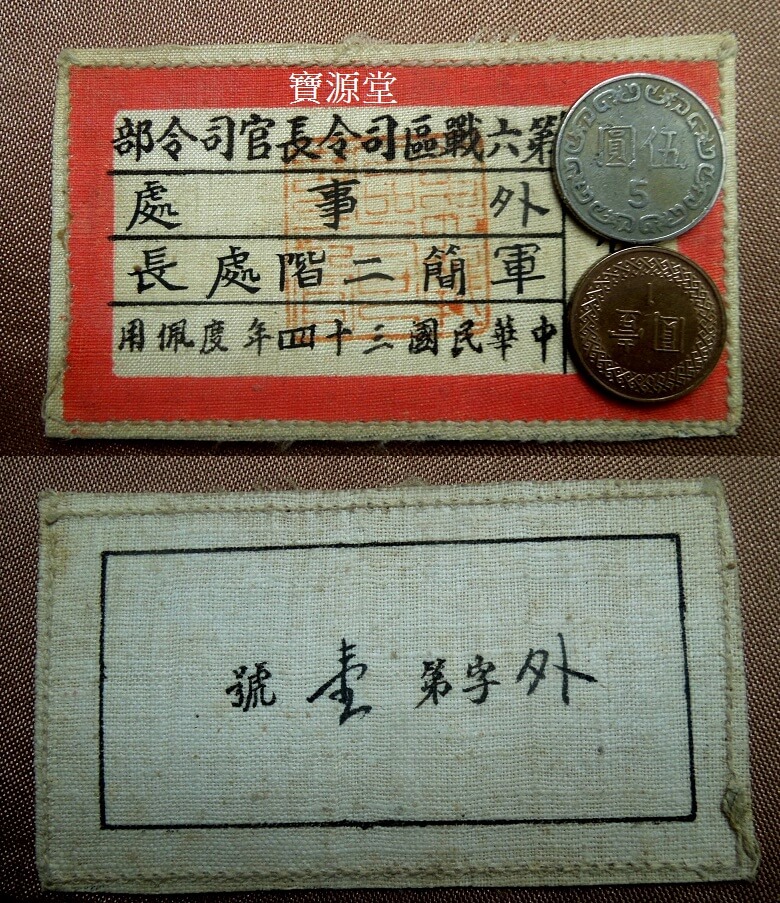 寶源堂
第六戰區司令長官司令部
外事處
軍簡二階處長
中華民國三十四年度佩用
伍圓
5
壹圓
1
外字第壹號